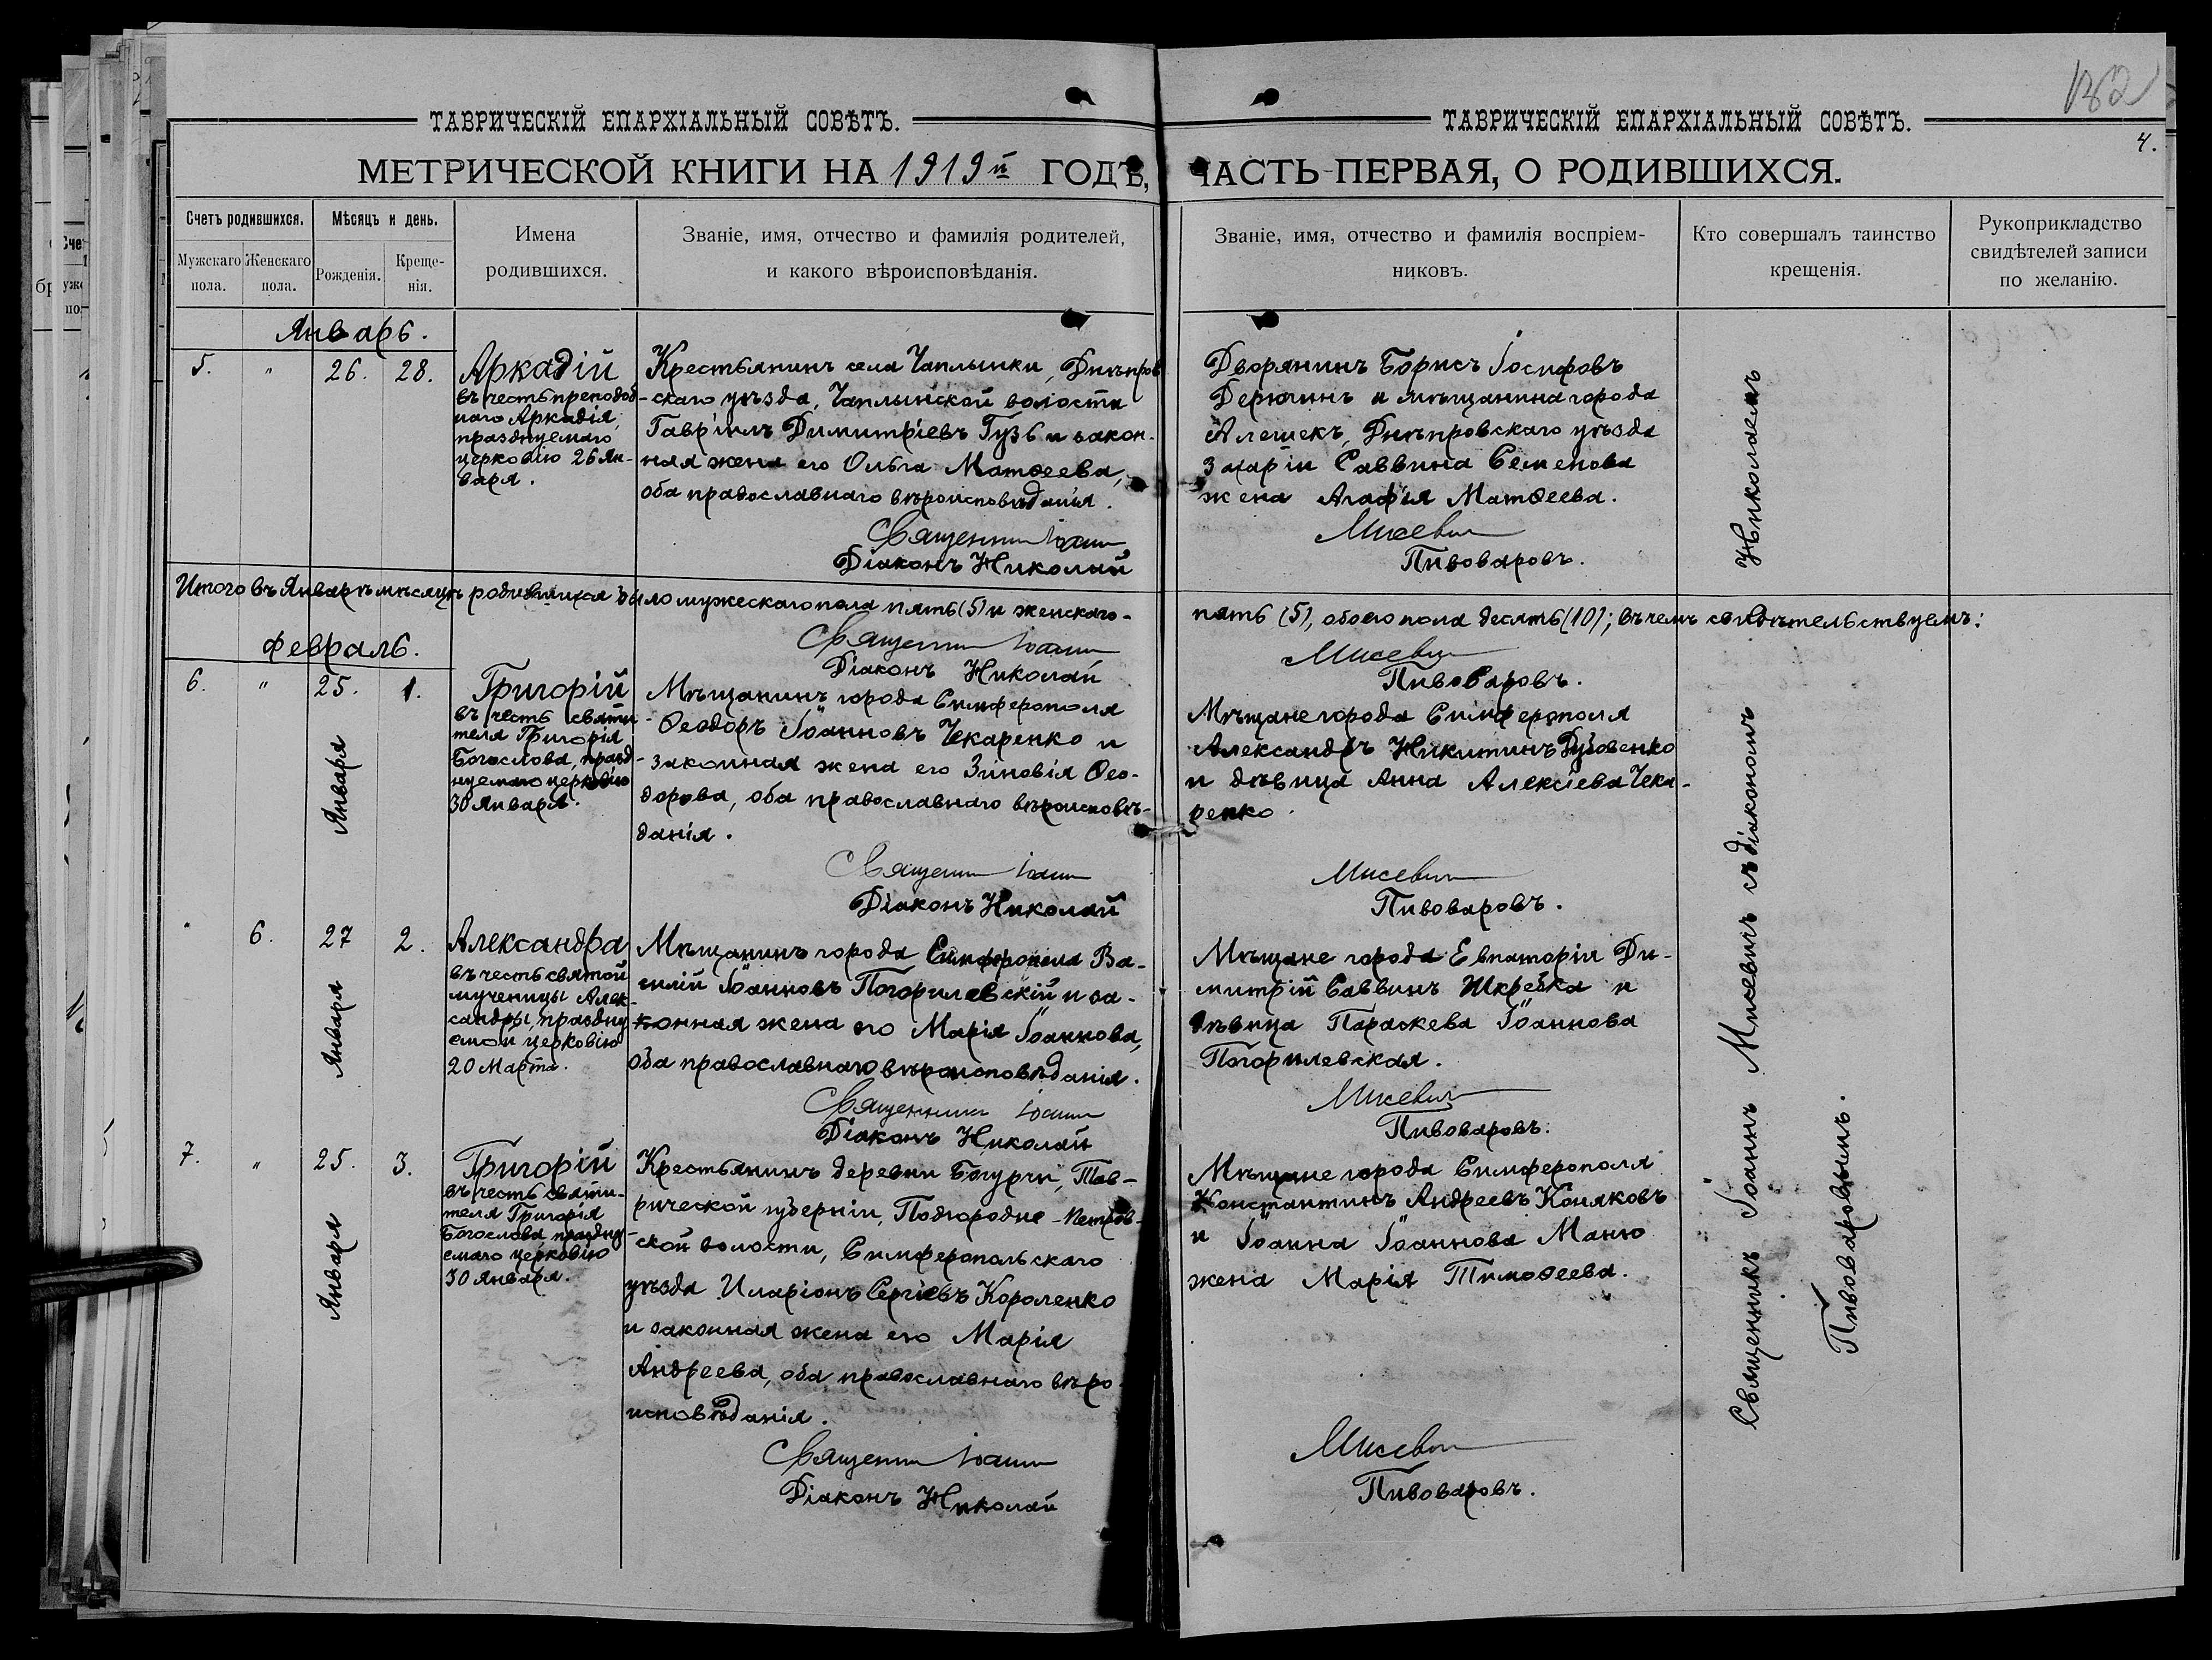 182
4.
ТАВРИЧЕСКІЙ ЕПАРХІАЛЬНЫЙ СОВѢТЪ.
ТАВРИЧЕСКІЙ ЕПАРХІАЛЬНЫЙ СОВѢТЪ.
МЕТРИЧЕСКОЙ КНИГИ НА 1919й ГОДЪ,
ЧАСТЬ ПЕРВАЯ, О РОДИВШИХСЯ.
Счетъ родившихся.
Мужскаго пола.
Женскаго пола.
Мѣсяцъ и день.
Рожденія.
Креще-
нія.
Имена
родившихся.
Званіе, имя, отчество и фамилія родителей,
и какого вѣроисповѣданія.
Званіе, имя, отчество и фамилія воспріем-
никовъ.
Кто совершалъ таинство
крещенія.
Рукоприкладство
свидѣтелей записи
по желанію.
Январь.
5. " 26. 28.
Аркадій
въ честь преподоб-
наго Аркадія,
празднуемаго
церковію 26 Ян-
варя.
Крестьянинъ села Чаплынки, Днѣпров
скаго уѣзда, Чаплынской волости
Гавріилъ Димитріевъ Гузь и закон-
ная жена его Ольга Матѳеева,
оба православнаго вѣроисповѣданія.
Священникъ Іоаннъ
Діаконъ Николай
Дворянинъ Борисъ Іосифовъ
Дерюгинъ и мѣщанина города
Алешекъ, Днѣпровскаго уѣзда
Захаріи Саввина Семенова
жена Агафія Матѳеева.
Мисевичъ
Пивоваровъ.
Итого въ Январѣ мѣсяцѣ родившихся было мужескаго пола пять (5) и женскаго-
пять (5), обоего пола десять (10); въ чемъ свидѣтельствуемъ:
Священникъ Іоаннъ
Діаконъ Николай
Мисевичъ
Пивоваровъ.
Февраль.
6. " 25. 1.
Января
Григорій
въ честь святи-
теля Григорія
Богослова, празд-
нуемаго церковію
30 Января.
Мѣщанинъ города Симферополя
Ѳеодоръ Іоанновъ Чекаренко и
законная жена его Зиновія Ѳео-
дорова, оба православнаго вѣроисповѣ-
данія.
Священникъ Іоаннъ
Діаконъ Николай
Мѣщане города Симферополя
Александръ Никитинъ Дубовенко
и дѣвица Анна Алексіева Чека-
ренко.
Мисевичъ
Пивоваровъ.
" 6. 27 2.
Января
Александра
въ честь святой
мученицы Алек-
сандры, праздну
емой церковію
20 Марта.
Мѣщанинъ города Симферополя Ва-
силій Іоанновъ Погорилевскій и за-
конная жена его Марія Іоаннова,
оба православнаго вѣроисповѣданія.
Священникъ Іоаннъ
Діаконъ Николай
Мѣщане города Евпаторіи Ди-
митрій Саввинъ Шкребка и
дѣвица Параскева Іоаннова
Погорилевская.
Мисевичъ
Пивоваровъ.
7. " 25. 3.
Января
Григорій
въ честь святи-
теля Григорія
Богослова праздну-
емаго церковію
30 Января.
Крестьянинъ деревни Богурчи, Тав-
рической губерніи, Подгородне-Петров-
ской волости, Симферопольскаго
уѣзда Иларіонъ Сергіевъ Короленко
и законная жена его Марія
Андреева, оба православнаго вѣро-
исповѣданія.
Священникъ Іоаннъ
Діаконъ Николай
Мѣщане города Симферополя
Константинъ Андреевъ Коняковъ
и Іоанна Іоаннова Маню
жена Марія Тимоѳеева.
Мисевичъ
Пивоваровъ.
Священникъ Іоаннъ Мисевичъ съ діакономъ Николаемъ
Пивоваровымъ.